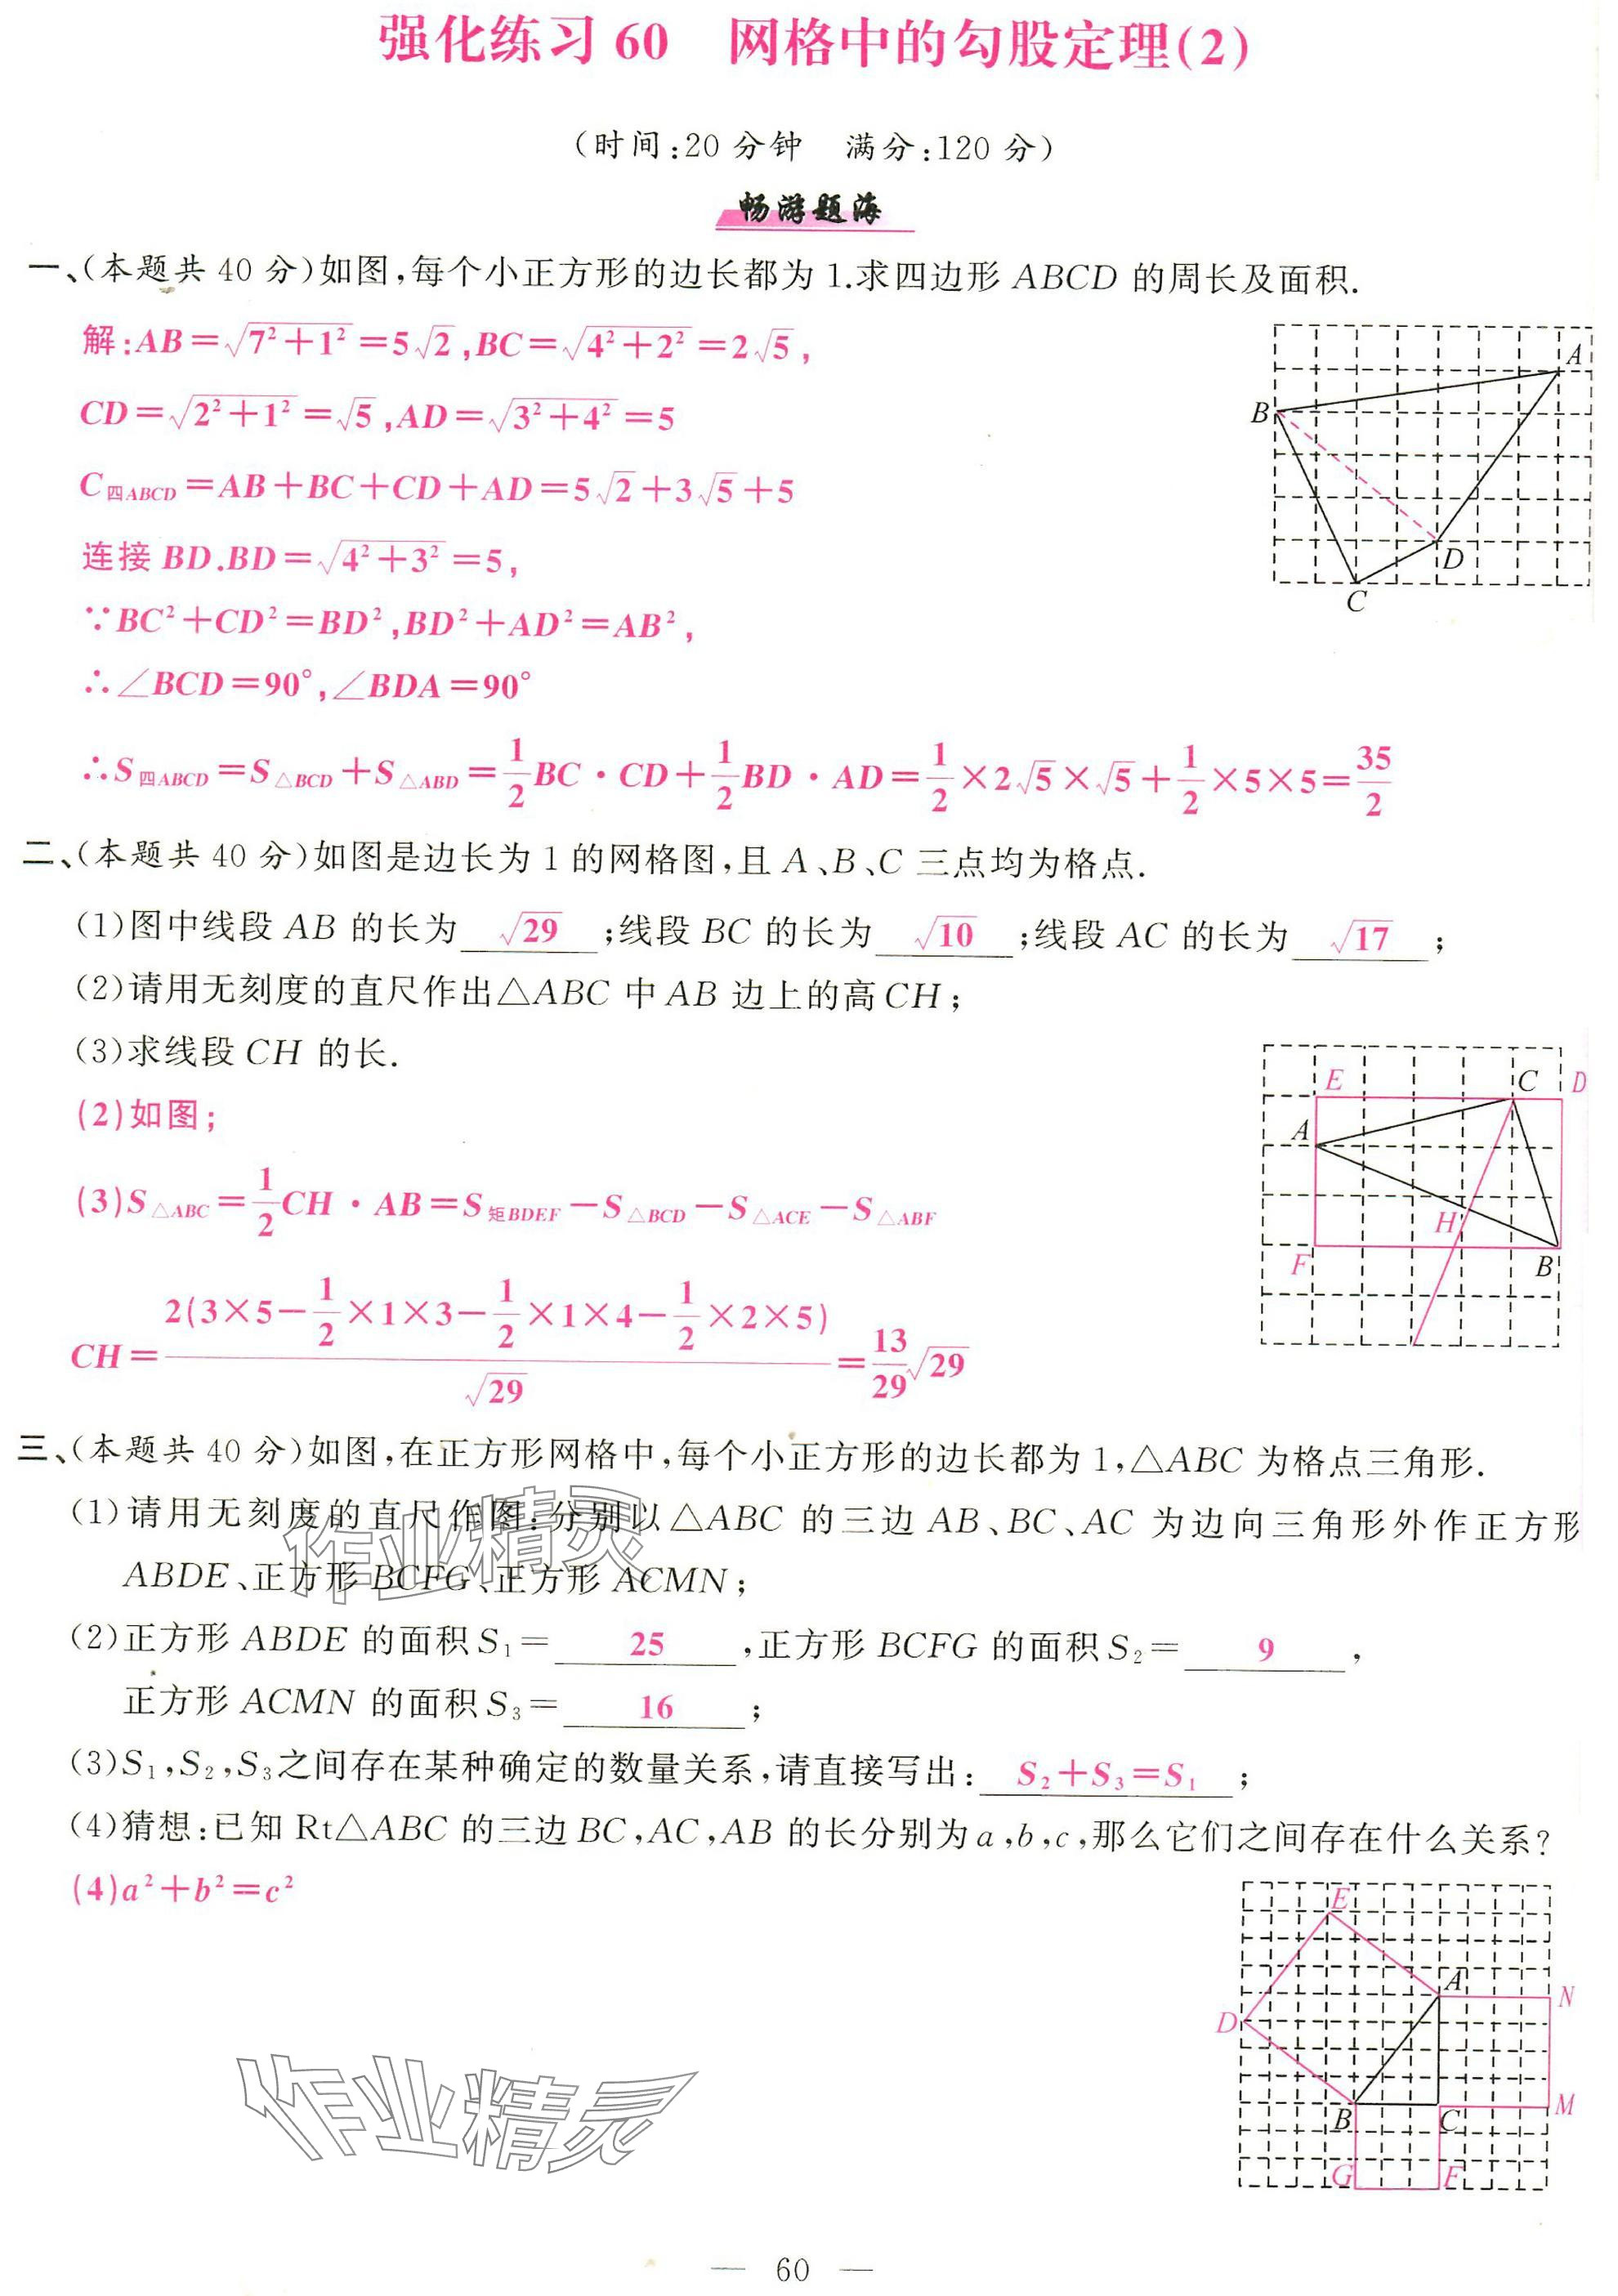 强化练习60　网格中的勾股定理(2)
(时间:20分钟　满分:120分)
畅游题海
一、(本题共40分)如图,每个小正方形的边长都为1.求四边形ABCD的周长及面积.
解:AB=√(7²+1²)=5√2,BC=√(4²+2²)=2√5,
CD=√(2²+1²)=√5,AD=√(3²+4²)=5
C四ABCD=AB+BC+CD+AD=5√2+3√5+5
连接BD.BD=√(4²+3²)=5,
∵BC²+CD²=BD²,BD²+AD²=AB²,
∴∠BCD=90°,∠BDA=90°
∴S四ABCD=S△BCD+S△ABD=1/2BC·CD+1/2BD·AD=1/2×2√5×√5+1/2×5×5=35/2
A
B
D
C
二、(本题共40分)如图是边长为1的网格图,且A、B、C三点均为格点.
(1)图中线段AB的长为 √29 ;线段BC的长为 √10 ;线段AC的长为 √17 ;
(2)请用无刻度的直尺作出△ABC中AB边上的高CH;
(3)求线段CH的长.
(2)如图;
(3)S△ABC=1/2CH·AB=S矩BDEF-S△BCD-S△ACE-S△ABF
CH=2(3×5-1/2×1×3-1/2×1×4-1/2×2×5)/√29=13/29√29
E C D
A
H
F B
三、(本题共40分)如图,在正方形网格中,每个小正方形的边长都为1,△ABC为格点三角形.
(1)请用无刻度的直尺作图:分别以△ABC的三边AB、BC、AC为边向三角形外作正方形
ABDE、正方形BCFG、正方形ACMN;
(2)正方形ABDE的面积S₁= 25 ,正方形BCFG的面积S₂= 9 ,
正方形ACMN的面积S₃= 16 ;
(3)S₁,S₂,S₃之间存在某种确定的数量关系,请直接写出: S₂+S₃=S₁ ;
(4)猜想:已知Rt△ABC的三边BC,AC,AB的长分别为a,b,c,那么它们之间存在什么关系?
(4)a²+b²=c²
E
A N
D
B C M
G F
作业精灵
作业精灵
— 60 —